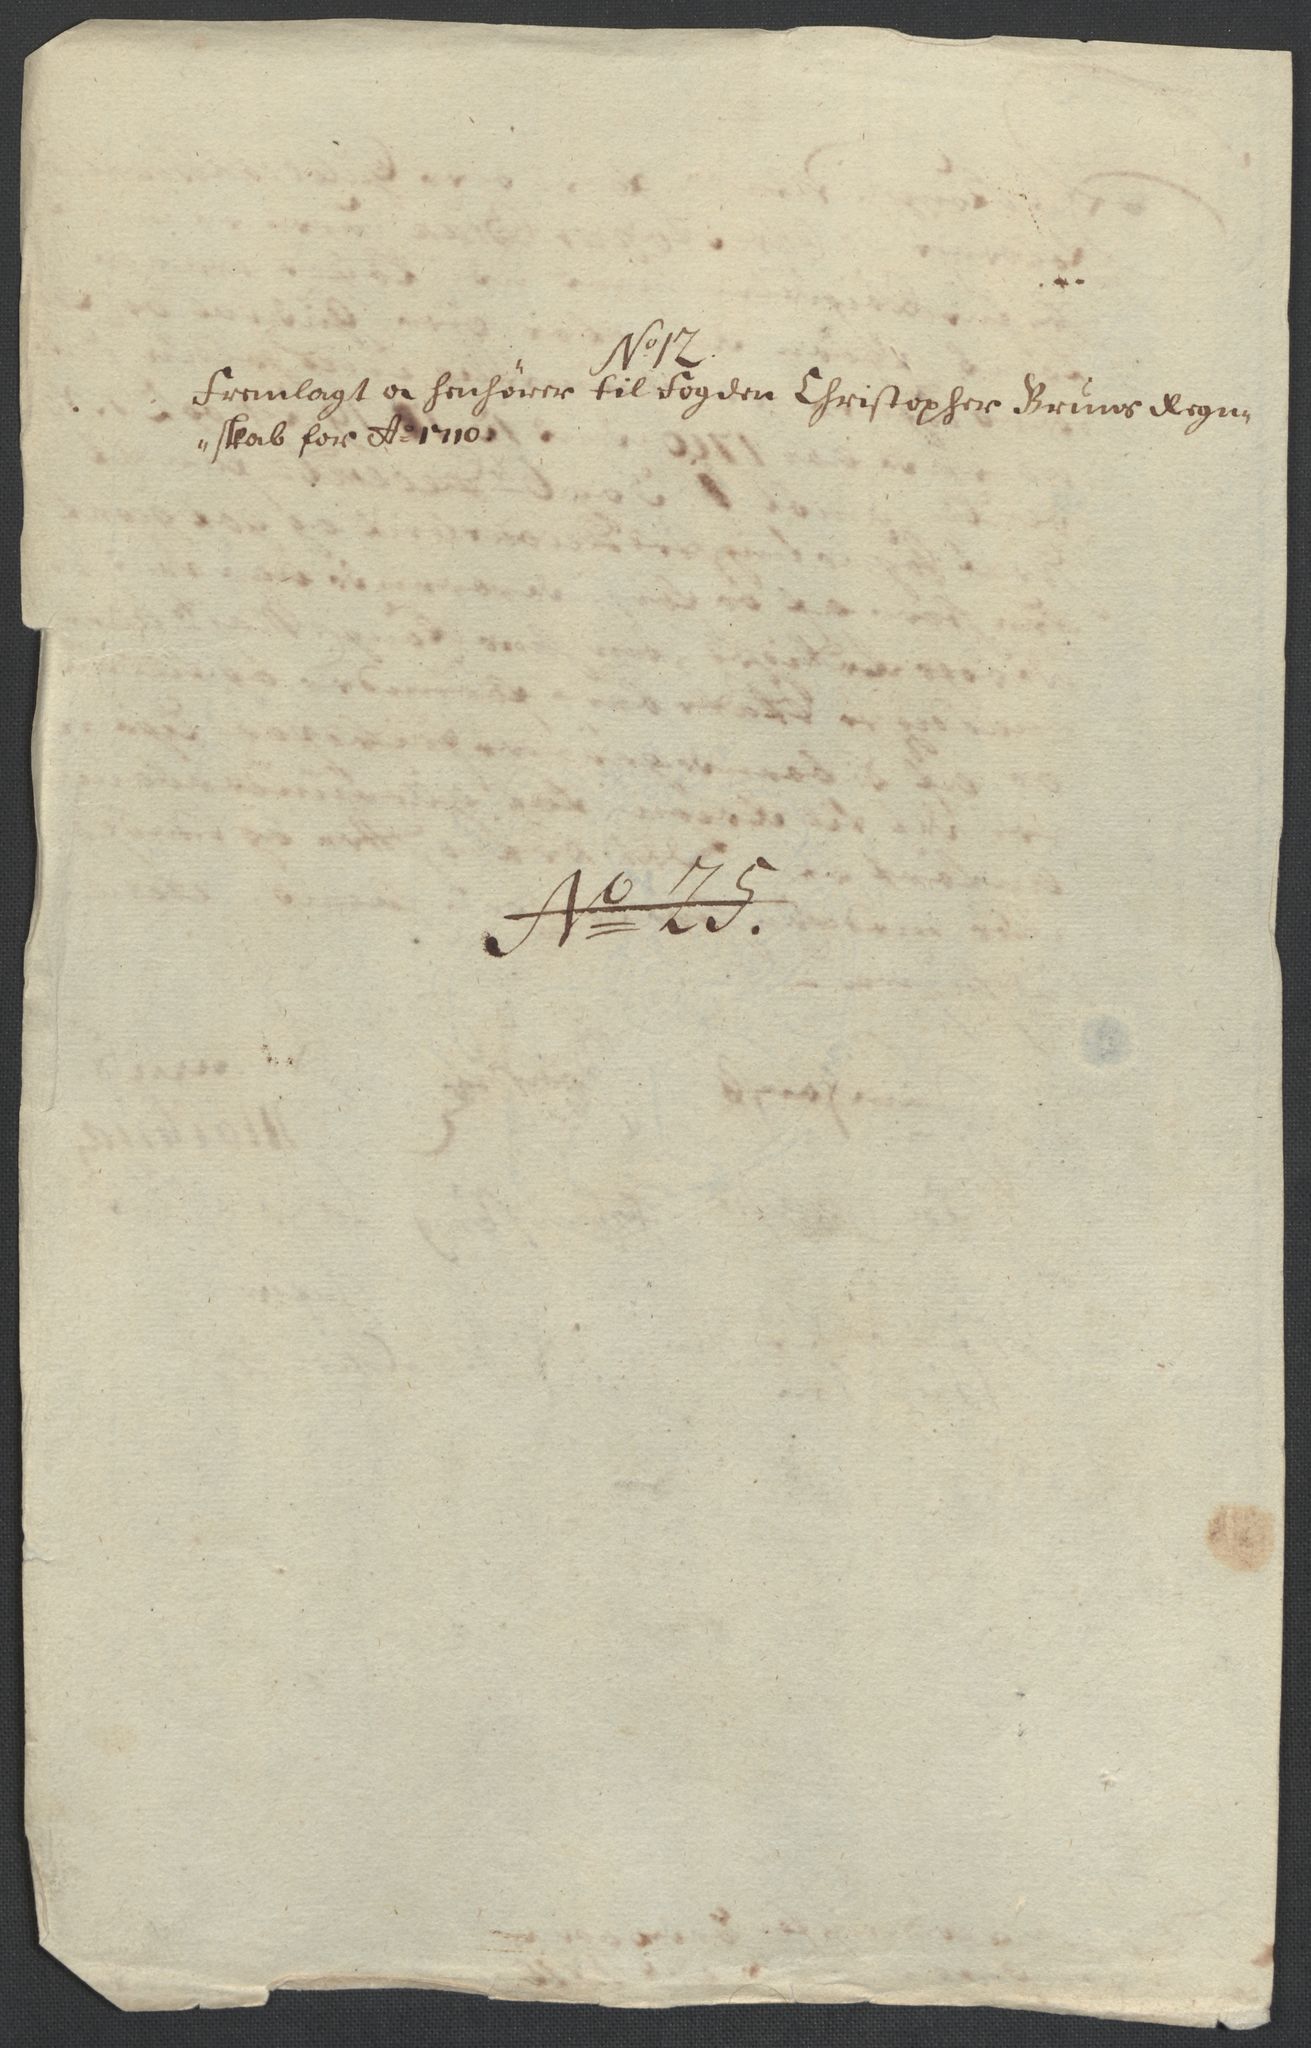 No 12.
Fremlagt og henhører til Fogden Christopher Bruns Regn„
„skab for Ao 1710.
No 25.